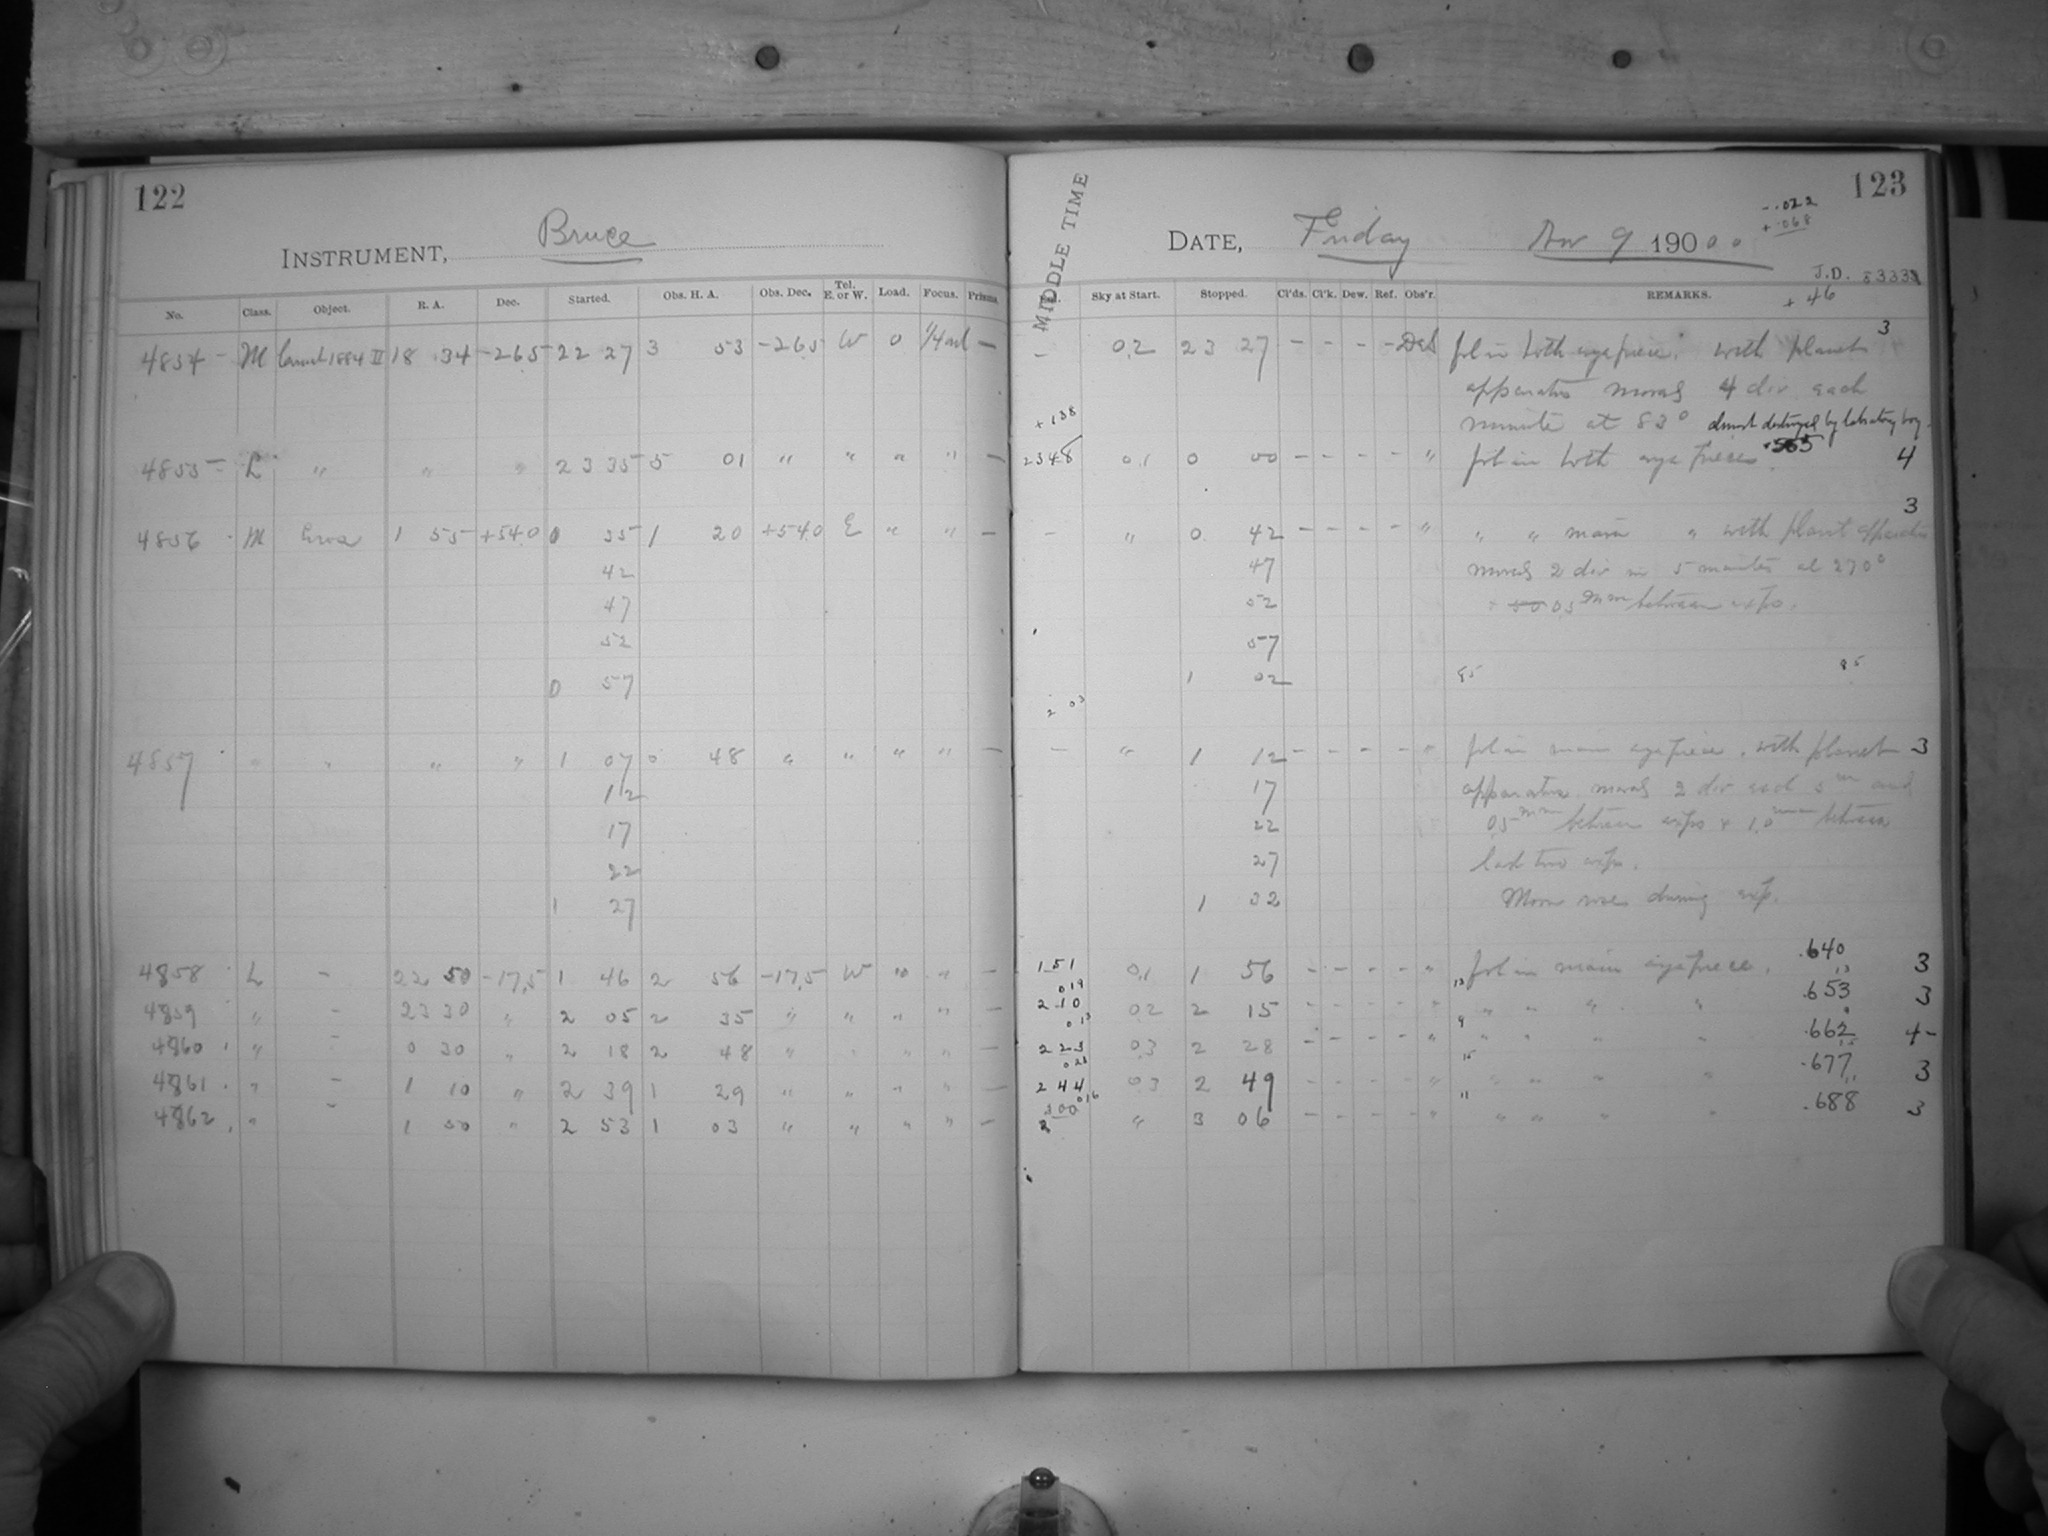 122
INSTRUMENT, Bruce
No. Class. Object. R. A. Dec. Started. Obs. H. A. Obs. Dec. Tel. E. or W. Load. Focus. Prisms.
4854 - M Comet 1884 II 18 34 -26.5 22 27 3 53 -26.5 W 0 —
4855 - L " " " 23 35 5 01 " " " " —
4856 M Eros 1 55 +54.0 0 35 1 20 +54.0 E " " —
42
47
52
0 57
4857 " " " " 1 07 0 48 " " " " —
12
17
22
1 27
4858 L - 22 50 -17.5 1 46 2 56 -17.5 W " " —
4859 " - 23 30 " 2 05 2 35 " " " " —
4860 " - 0 30 " 2 18 2 48 " " " " —
4861 " - 1 10 " 2 39 1 29 " " " " —
4862 " - 1 50 " 2 53 1 03 " " " " —
123
MIDDLE TIME
DATE, Friday Nov 9 1900
-.022
+.068
J.D.
+46
Sky at Start. Stopped. Cl'ds. Cl'k. Dew. Ref. Obs'r. REMARKS.
- 0.2 23 27 - - - - fol in both eyepieces. with planet 3
apparatus moved 4 div each
minute at 83° almost destroyed by laboratory boy.
+138
2348 0.1 0 00 - - - - " fol in both eyepieces. .565 4
- " 0 42 - - - - " " " main " with planet apparatus 3
47 moved 2 div in 5 minutes at 270°
52 between exps.
57
1 02 85 85
2 03
- " 1 12 - - - - " fol in main eyepiece. with planet 3
17 apparatus moved 2 div each 5m and
22 .05mm between exps + 1.0mm between
27 last two exps.
1 32 Moon rises during exp.
151 0.1 1 56 - - - - " fol in main eyepiece. .640 3
019 13 13
210 0.2 2 15 - - - - " " " " " .653 3
013 9 9
223 0.3 2 28 - - - - " " " " " .662 4-
021 15 15
244 0.3 2 49 - - - - " " " " " .677 3
016 11 11
300 " 3 06 - - - - " " " " " .688 3